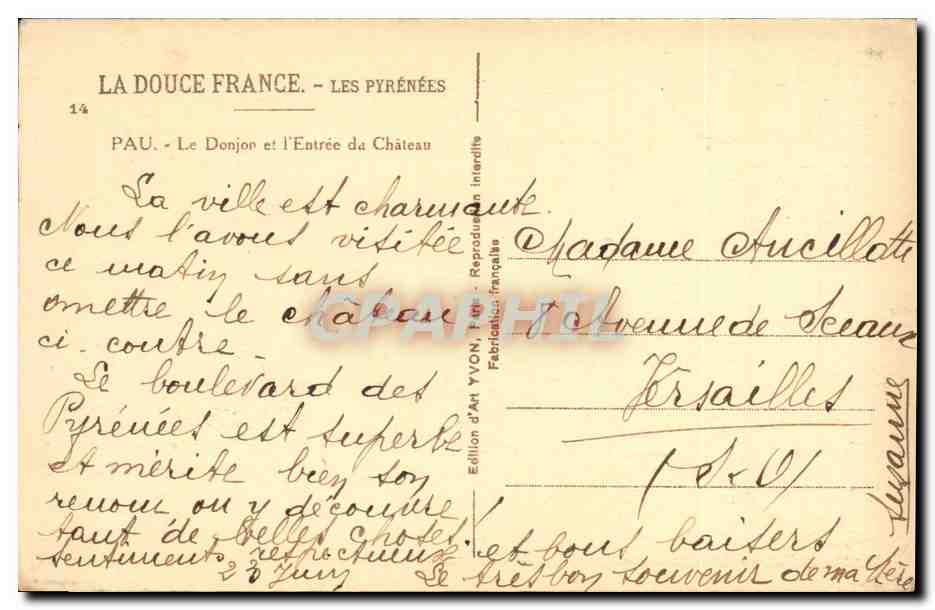 LA DOUCE FRANCE. - LES PYRÉNÉES
14
PAU. - Le Donjon et l'Entrée du Château
La ville est charmante.
Nous l'avons visitée
ce matin sans
omettre le château
ci-contre.
Le boulevard des
Pyrénées est superbe
et mérite bien son
renom on y découvre
tant de belles choses!
sentiments respectueux et bons baisers
23 Juin Le très bon souvenir de ma Mère
Suzanne
Edition d'Art YVON, Paris - Reproduction interdite
Fabrication française
Madame Ancillotti
8 Avenue de Sceaux
Versailles
(S-O)
CPAPHIL